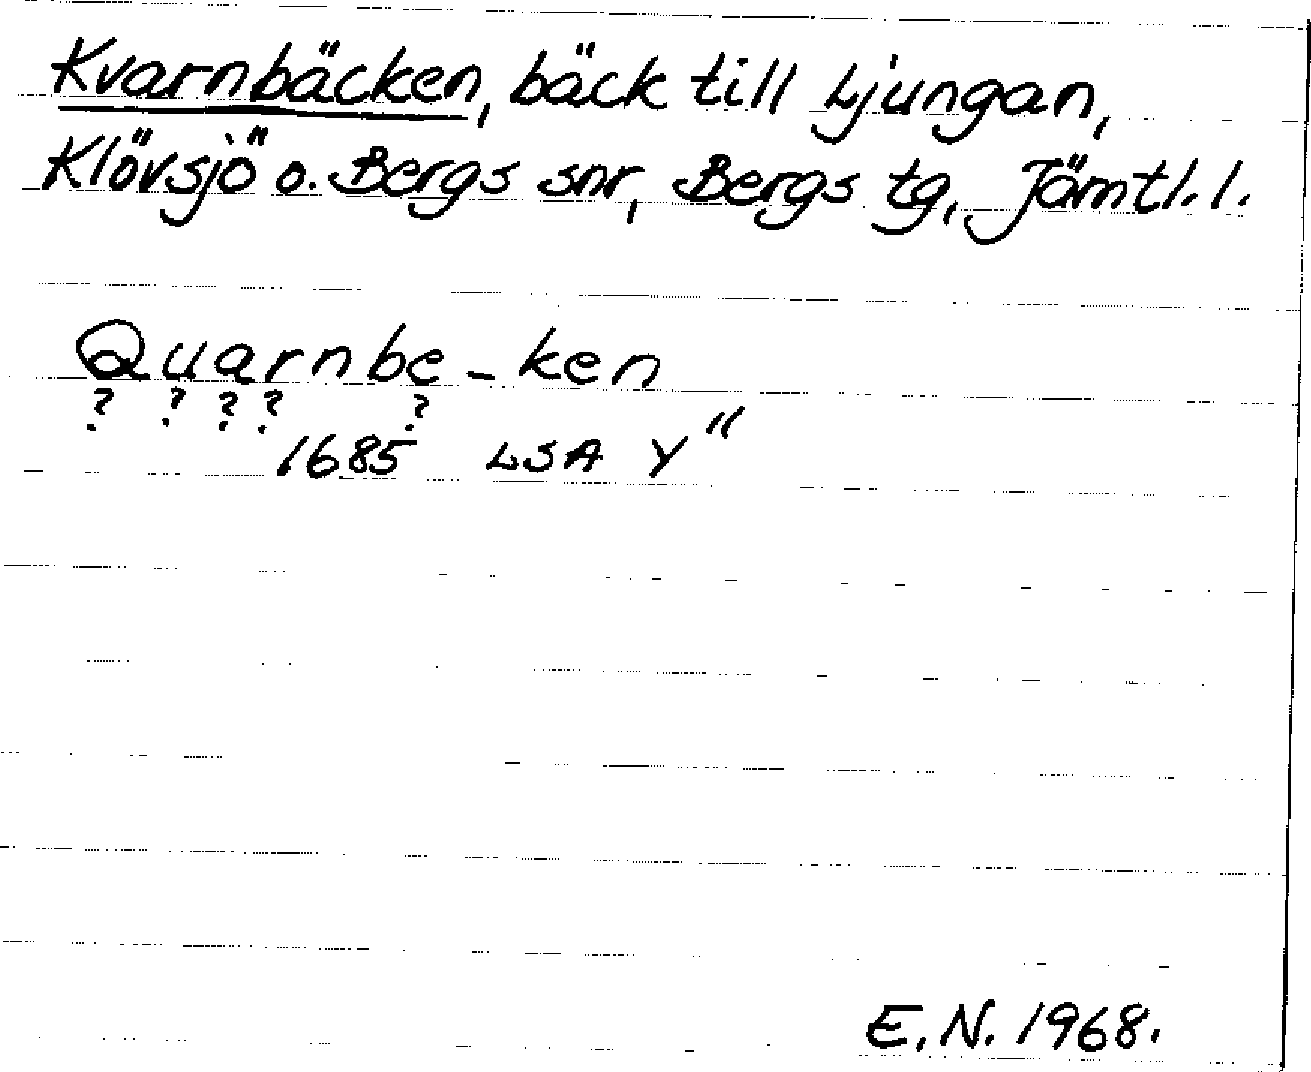 Kvarnbäcken, bäck till Ljungan,
Klövsjö o. Bergs snr, Bergs tg, Jämtl. l.
Quarnbe-ken
? ? ? ? ?
1685 LSA Y"
E.N. 1968.